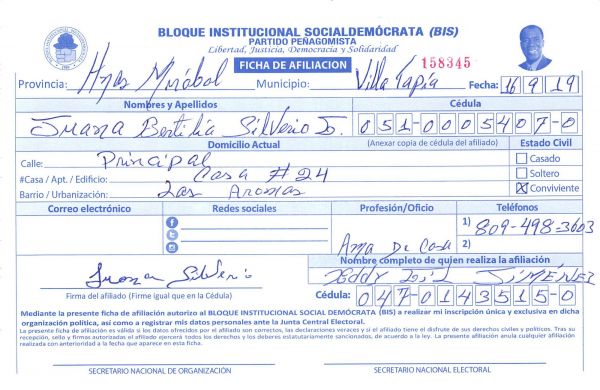 BLOQUE INSTITUCIONAL SOCIALDEMÓCRATA (BIS)
PARTIDO PEÑAGOMISTA
Libertad, Justicia, Democracia y Solidaridad
FICHA DE AFILIACION 158345
Provincia: Hnas Mirabal Municipio: Villa Tapia Fecha: 16 9 19
Nombres y Apellidos Cédula
Juana Bertilia Silverio J. 051-0005407-0
Domicilio Actual (Anexar copia de cédula del afiliado) Estado Civil
Calle: Principal Casado
#Casa / Apt. / Edificio: Casa # 24 Soltero
Barrio / Urbanización: Las Aromas X Conviviente
Correo electrónico Redes sociales Profesión/Oficio Teléfonos
1) 809-498-3603
Ama De Casa 2)
Nombre completo de quien realiza la afiliación
Juana Silverio JIMÉNEZ
Firma del afiliado (Firme igual que en la Cédula) Cédula: 047-0143515-0
Mediante la presente ficha de afiliación autorizo al BLOQUE INSTITUCIONAL SOCIAL DEMÓCRATA (BIS) a realizar mi inscripción única y exclusiva en dicha
organización política, así como a registrar mis datos personales ante la Junta Central Electoral.
La presente ficha de afiliación es válida si los datos ofrecidos por el afiliado son correctos, las declaraciones veraces y si el afiliado tiene el disfrute de sus derechos civiles y políticos. Tras su
recepción, sello y firmas autorizadas el afiliado ejercerá todos los derechos y los deberes estatutariamente sancionados, de acuerdo a la ley. La presente afiliación anula cualquier afiliación
realizada con anterioridad a la fecha que aparece en esta ficha.
SECRETARIO NACIONAL DE ORGANIZACIÓN SECRETARIO NACIONAL ELECTORAL